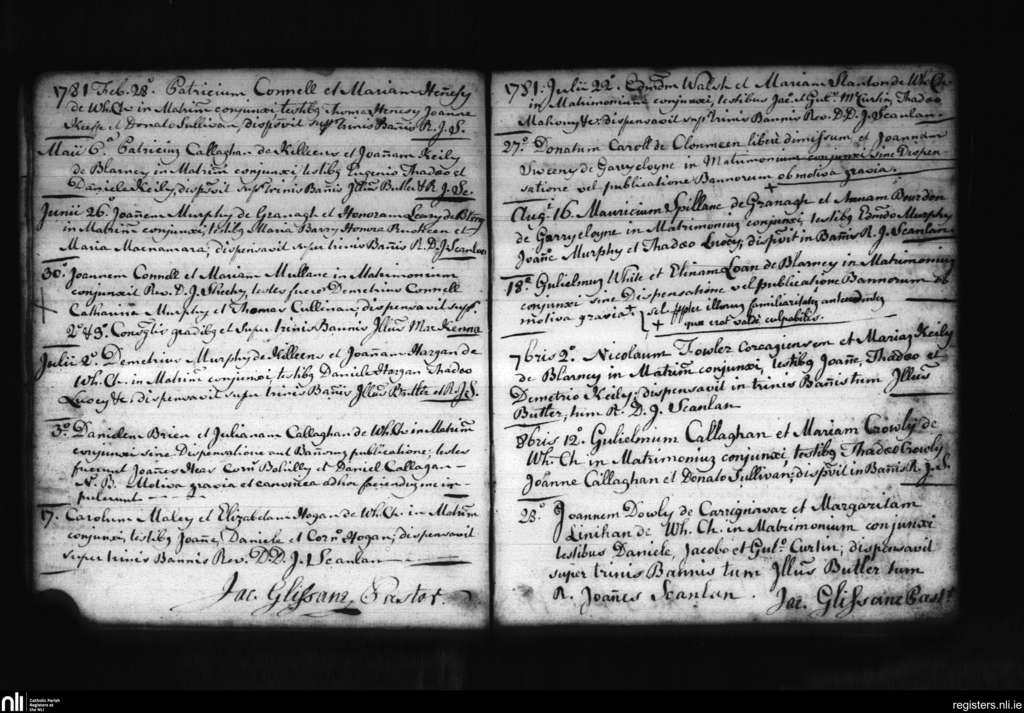 1781 Feb. 28.º Patricium Connell et Mariam Heñesy
de Wh.Ch in Matrim̄ conjunxi testibȝ Thoma Henesy Joanne
Keeffe et Donato Sullivan, dispsvit supr trinis Bañis R. J. S.
Maii 6.º Patriciuȝ Callaghan de Killeens et Joañam Keily
de Blarney in Matrim̄ conjunxi testibȝ Eugenio Thadæo et
Daniele Keily, dispsvit supr trinis Bañis Jllūs Butler & R. J. Sc.
Junii 26.º Joañem Murphy de Granagh et Honoram Leary de Blrny
in Matrim̄ conjunxi, testibȝ Maria Barry Honora et
Maria Macnamara; dispensavit supr trinis Bañis R.D.J Scanlan
30.º Joannem Connell et Mariam Mullane in Matrimonium
conjunxit Rev. D. J. Sheehy, testes fuere Demetrius Connell
Catharina Murphy et Thomas Cullinan, dispensavit supr.
2.º & 3.º Consg̃is gradibȝ et super trinis Bannis Jllūs MacKenna
Julii 2.º Demetrius Murphy de Killeens et Joañam Horgan de
Wh. Ch. in Matrim̄ conjunxi, testibȝ Daniele Horgan Thadæo
Lucey &c, dispensavit super trinis Bañis Jllūs Butler et R. J. S.
3.º Danielem Brien et Julianam Callaghan de Wh.Ch in Matrim̄
conjunxi sine Dispensatione aut Bañruȝ publicatione; testes
fuerunt Joañes Corn̄ and Daniel Callagan -
N. B. Motiva gravia et canonica ad hoc faciendȝ me im
pulerunt - - -
17. Carolum Maley et Elizabetam Hogan de Wh.Ch. in Matrim̄
conjunxi, testibȝ Joañe, Daniele et Corn.º Hogan; dispensavit
super trinis Bannis Rev. D.D. J. Scanlan
Jac. Glissane, Pastor.
1781. Julii 22.º Edmdm Walsh et Mariam Stanton de Wh.Ch
in Matrimonium conjunxi, testibus Jac.º et Gul.º McCurtin Thadæo
Mahony &c: dispensavit supr trinis Bannis Rev. D.D. J. Scanlan.
27.º Donatum Caroll de Clonmeen liberè dimissum et Joannam
Sweeny de Garrycloyne in Matrimonium conjunxi sine Dispen
satione vel publicatione Bannorum ob motiva gravia.
Aug.t 16. Mauricium Spillane de Granagh et Annam Bourdon
de Garrycloyne in Matrimoniuȝ conjunxi, testibȝ Edmdo Murphy
Joañe Murphy et Thadæo Lucey, dispsvit in Bañis R. J. Scanlan
18.º Gulielmuȝ White et Elinam Loan de Blarney in Matrimoniuȝ
conjunxi sine Dispensatione vel publicatione Bannorum ob
motiva gravia. scl. ppter illorum familiaritates antecedentes
quæ erat valdè culpabilis.
7bris 2.º Nicolaum Fowler Corcagensem et Mariaȝ Keily
de Blarney in Matrim̄ conjunxi, testibȝ Joañe, Thadæo et
Demetrio Keily; dispensavit in trinis Banis tum Jllūs
Butler, tum R. D. J. Scanlan
8bris 12.º Gulielmum Callaghan et Mariam Crowly de
Wh. Ch in Matrimoniuȝ conjunxi testibȝ Thadæo Crowly
Joanne Callaghan et Donato Sullivan; dispsvit in Bañis R. J. S.
28.º Joannem Dowly de Carrignavar et Margaritam
Linihan de Wh. Ch. in Matrimonium conjunxi
testibus Daniele, Jacobo et Gul.º Curtin; dispensavit
super trinis Bannis tum Jllūs Butler tum
R. Joañes Scanlan. Jac. Glissane Past.r
nli
Catholic Parish
Registers at
the NLI
registers.nli.ie